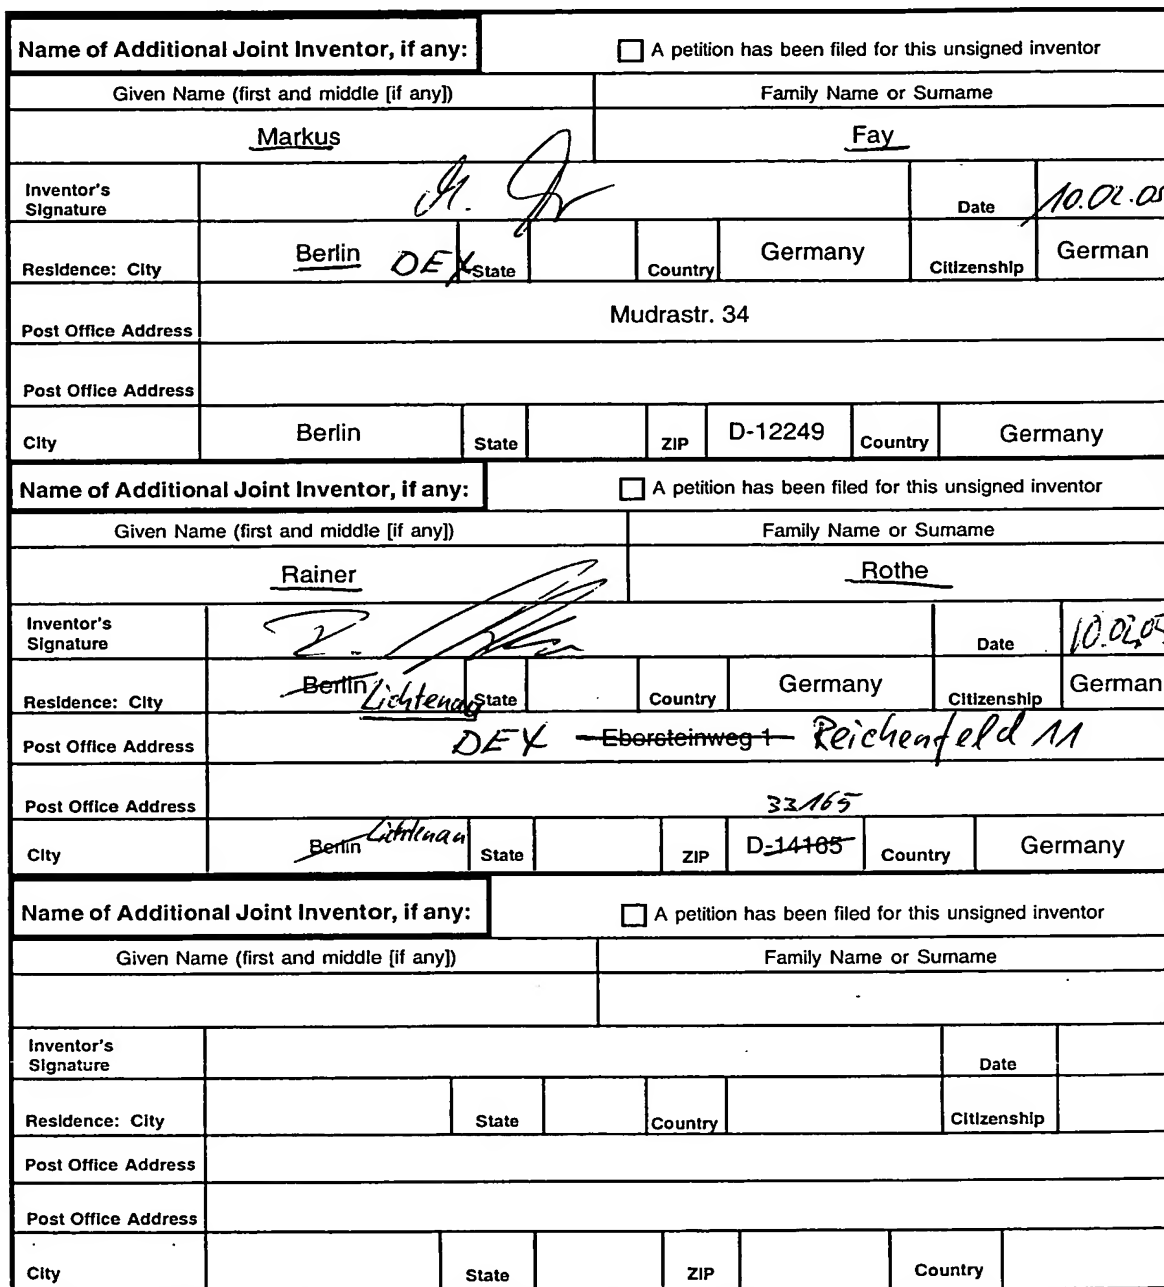 Name of Additional Joint Inventor, if any: A petition has been filed for this unsigned inventor
Given Name (first and middle [if any]) Family Name or Surname
Markus Fay
Inventor's Signature Date 10.02.05
Residence: City Berlin DEX State Country Germany Citizenship German
Post Office Address Mudrastr. 34
Post Office Address
City Berlin State ZIP D-12249 Country Germany
Name of Additional Joint Inventor, if any: A petition has been filed for this unsigned inventor
Given Name (first and middle [if any]) Family Name or Surname
Rainer Rothe
Inventor's Signature Date 10.02.05
Residence: City Berlin Lichtenau State Country Germany Citizenship German
Post Office Address DEX Ebersteinweg 1 Reichenfeld 11
Post Office Address 33165
City Berlin Lichtenau State ZIP D-14165 Country Germany
Name of Additional Joint Inventor, if any: A petition has been filed for this unsigned inventor
Given Name (first and middle [if any]) Family Name or Surname
Inventor's Signature Date
Residence: City State Country Citizenship
Post Office Address
Post Office Address
City State ZIP Country